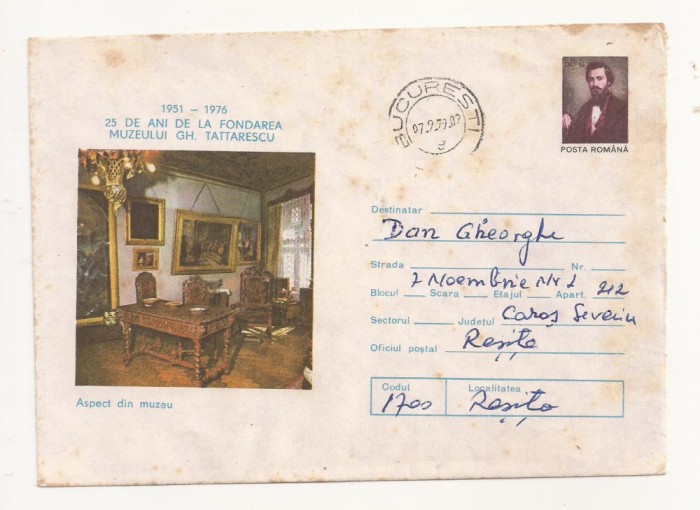 1951 - 1976
25 DE ANI DE LA FONDAREA
MUZEULUI GH. TATTARESCU
Aspect din muzeu
BUCURESTI
POSTA ROMÂNĂ
Destinatar
Dan Gheorghe
Strada Nr.
7 Noembrie Nr 2
Blocul Scara Etajul Apart. 212
Sectorul Județul Caraș Severin
Oficiul poștal Reșița
Codul Localitatea
1700 Reșița